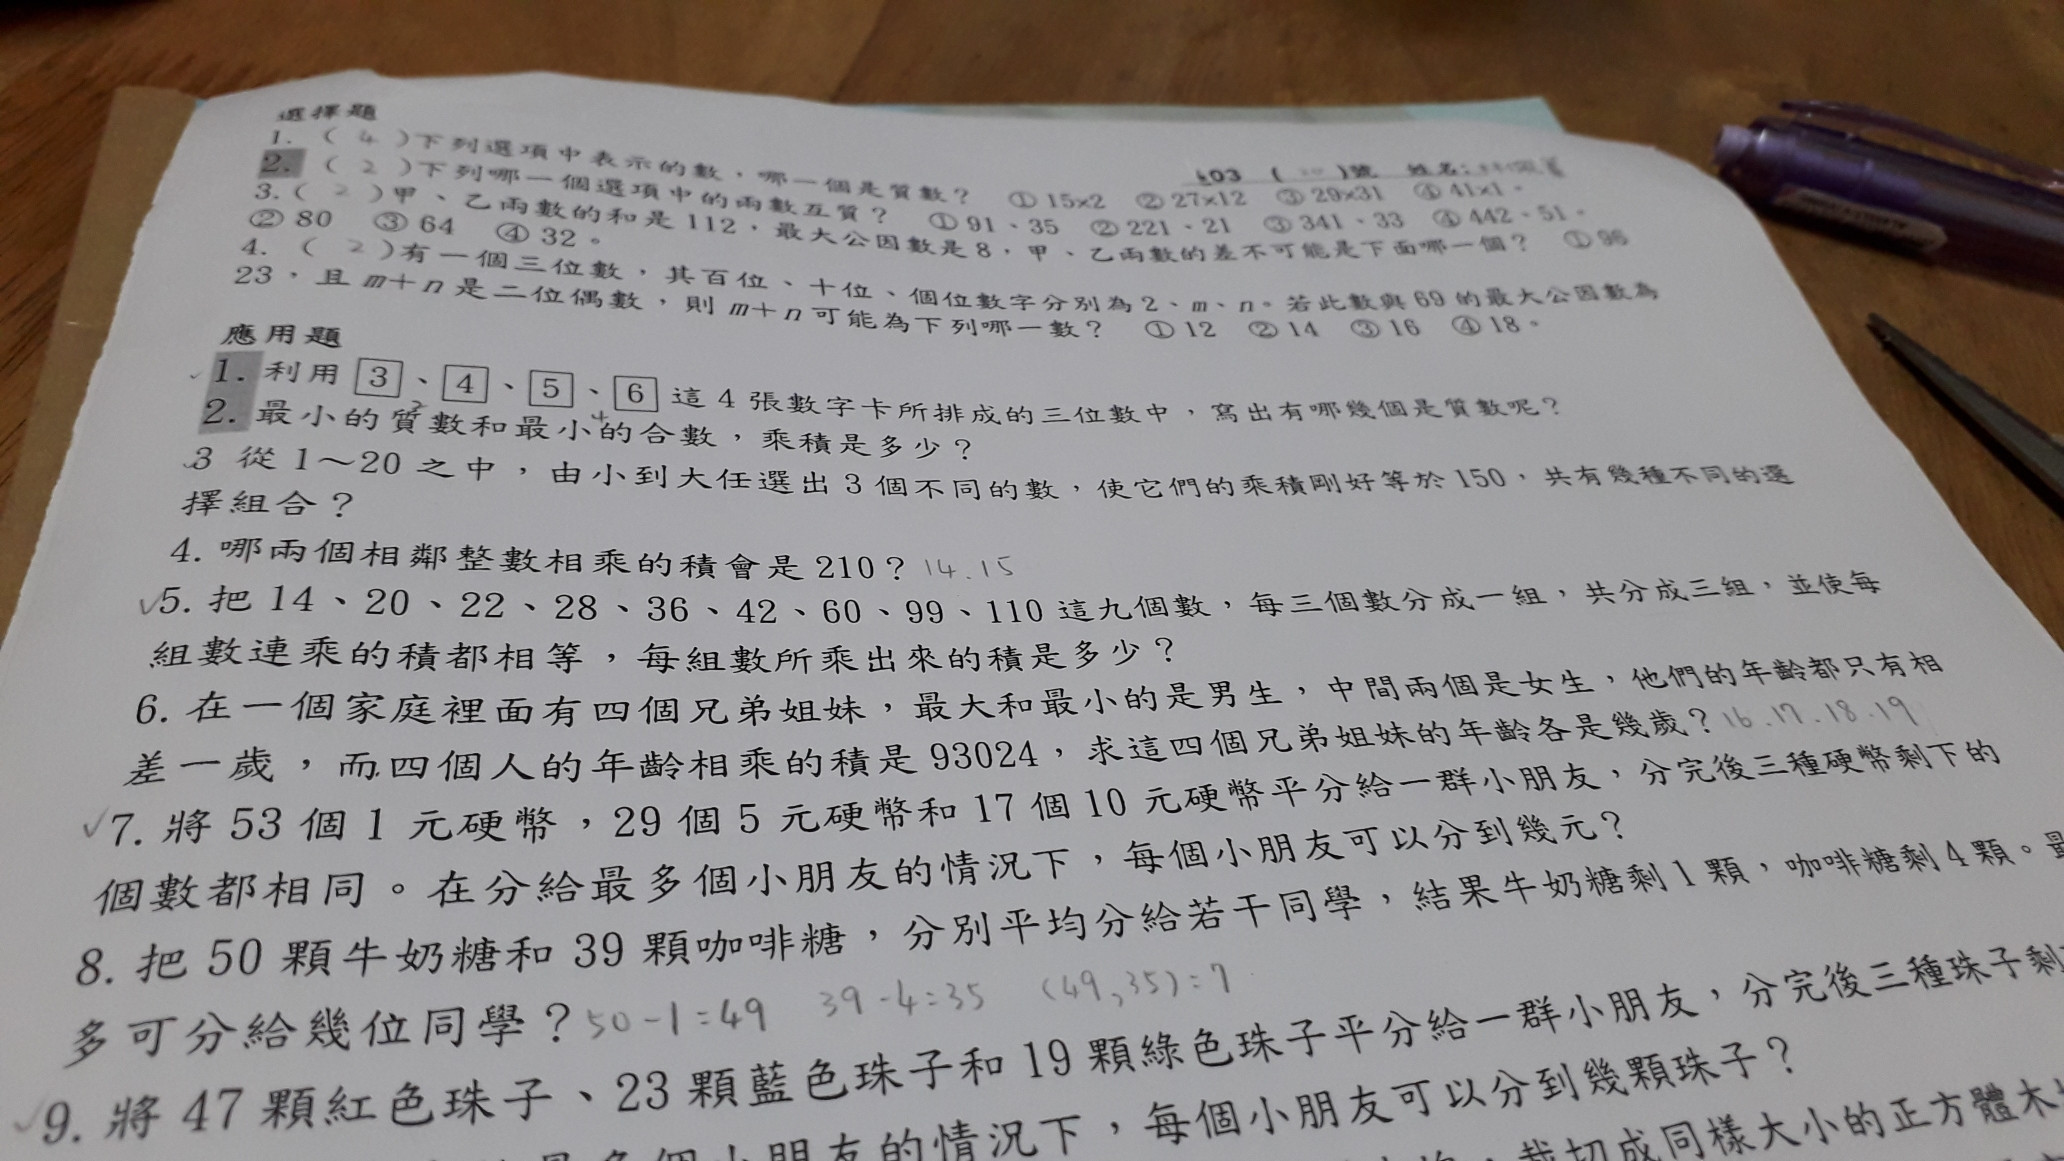 選擇題
603 ( )號 姓名:
1. ( 4 )下列選項中表示的數，哪一個是質數？ ①15×2 ②27×12 ③29×31 ④41×1。
2. ( 2 )下列哪一個選項中的兩數互質？ ①91、35 ②221、21 ③341、33 ④442、51。
3. ( 2 )甲、乙兩數的和是112，最大公因數是8，甲、乙兩數的差不可能是下面哪一個？ ①96
②80 ③64 ④32。
4. ( 2 )有一個三位數，其百位、十位、個位數字分別為2、m、n。若此數與69的最大公因數為
23，且m+n是二位偶數，則m+n可能為下列哪一數？ ①12 ②14 ③16 ④18。
應用題
✓1. 利用 3 、 4 、 5 、 6 這4張數字卡所排成的三位數中，寫出有哪幾個是質數呢？
2 4
2. 最小的質數和最小的合數，乘積是多少？
3 從1～20之中，由小到大任選出3個不同的數，使它們的乘積剛好等於150，共有幾種不同的選
擇組合？
4. 哪兩個相鄰整數相乘的積會是210？14.15
✓5. 把14、20、22、28、36、42、60、99、110這九個數，每三個數分成一組，共分成三組，並使每
組數連乘的積都相等，每組數所乘出來的積是多少？
6. 在一個家庭裡面有四個兄弟姐妹，最大和最小的是男生，中間兩個是女生，他們的年齡都只有相
差一歲，而四個人的年齡相乘的積是93024，求這四個兄弟姐妹的年齡各是幾歲？16.17.18.19
✓7. 將53個1元硬幣，29個5元硬幣和17個10元硬幣平分給一群小朋友，分完後三種硬幣剩下的
個數都相同。在分給最多個小朋友的情況下，每個小朋友可以分到幾元？
8. 把50顆牛奶糖和39顆咖啡糖，分別平均分給若干同學，結果牛奶糖剩1顆，咖啡糖剩4顆。最
多可分給幾位同學？50-1=49 39-4=35 (49,35)=7
✓9. 將47顆紅色珠子、23顆藍色珠子和19顆綠色珠子平分給一群小朋友，分完後三種珠子剩
個小朋友的情況下，每個小朋友可以分到幾顆珠子？
裁切成同樣大小的正方體木